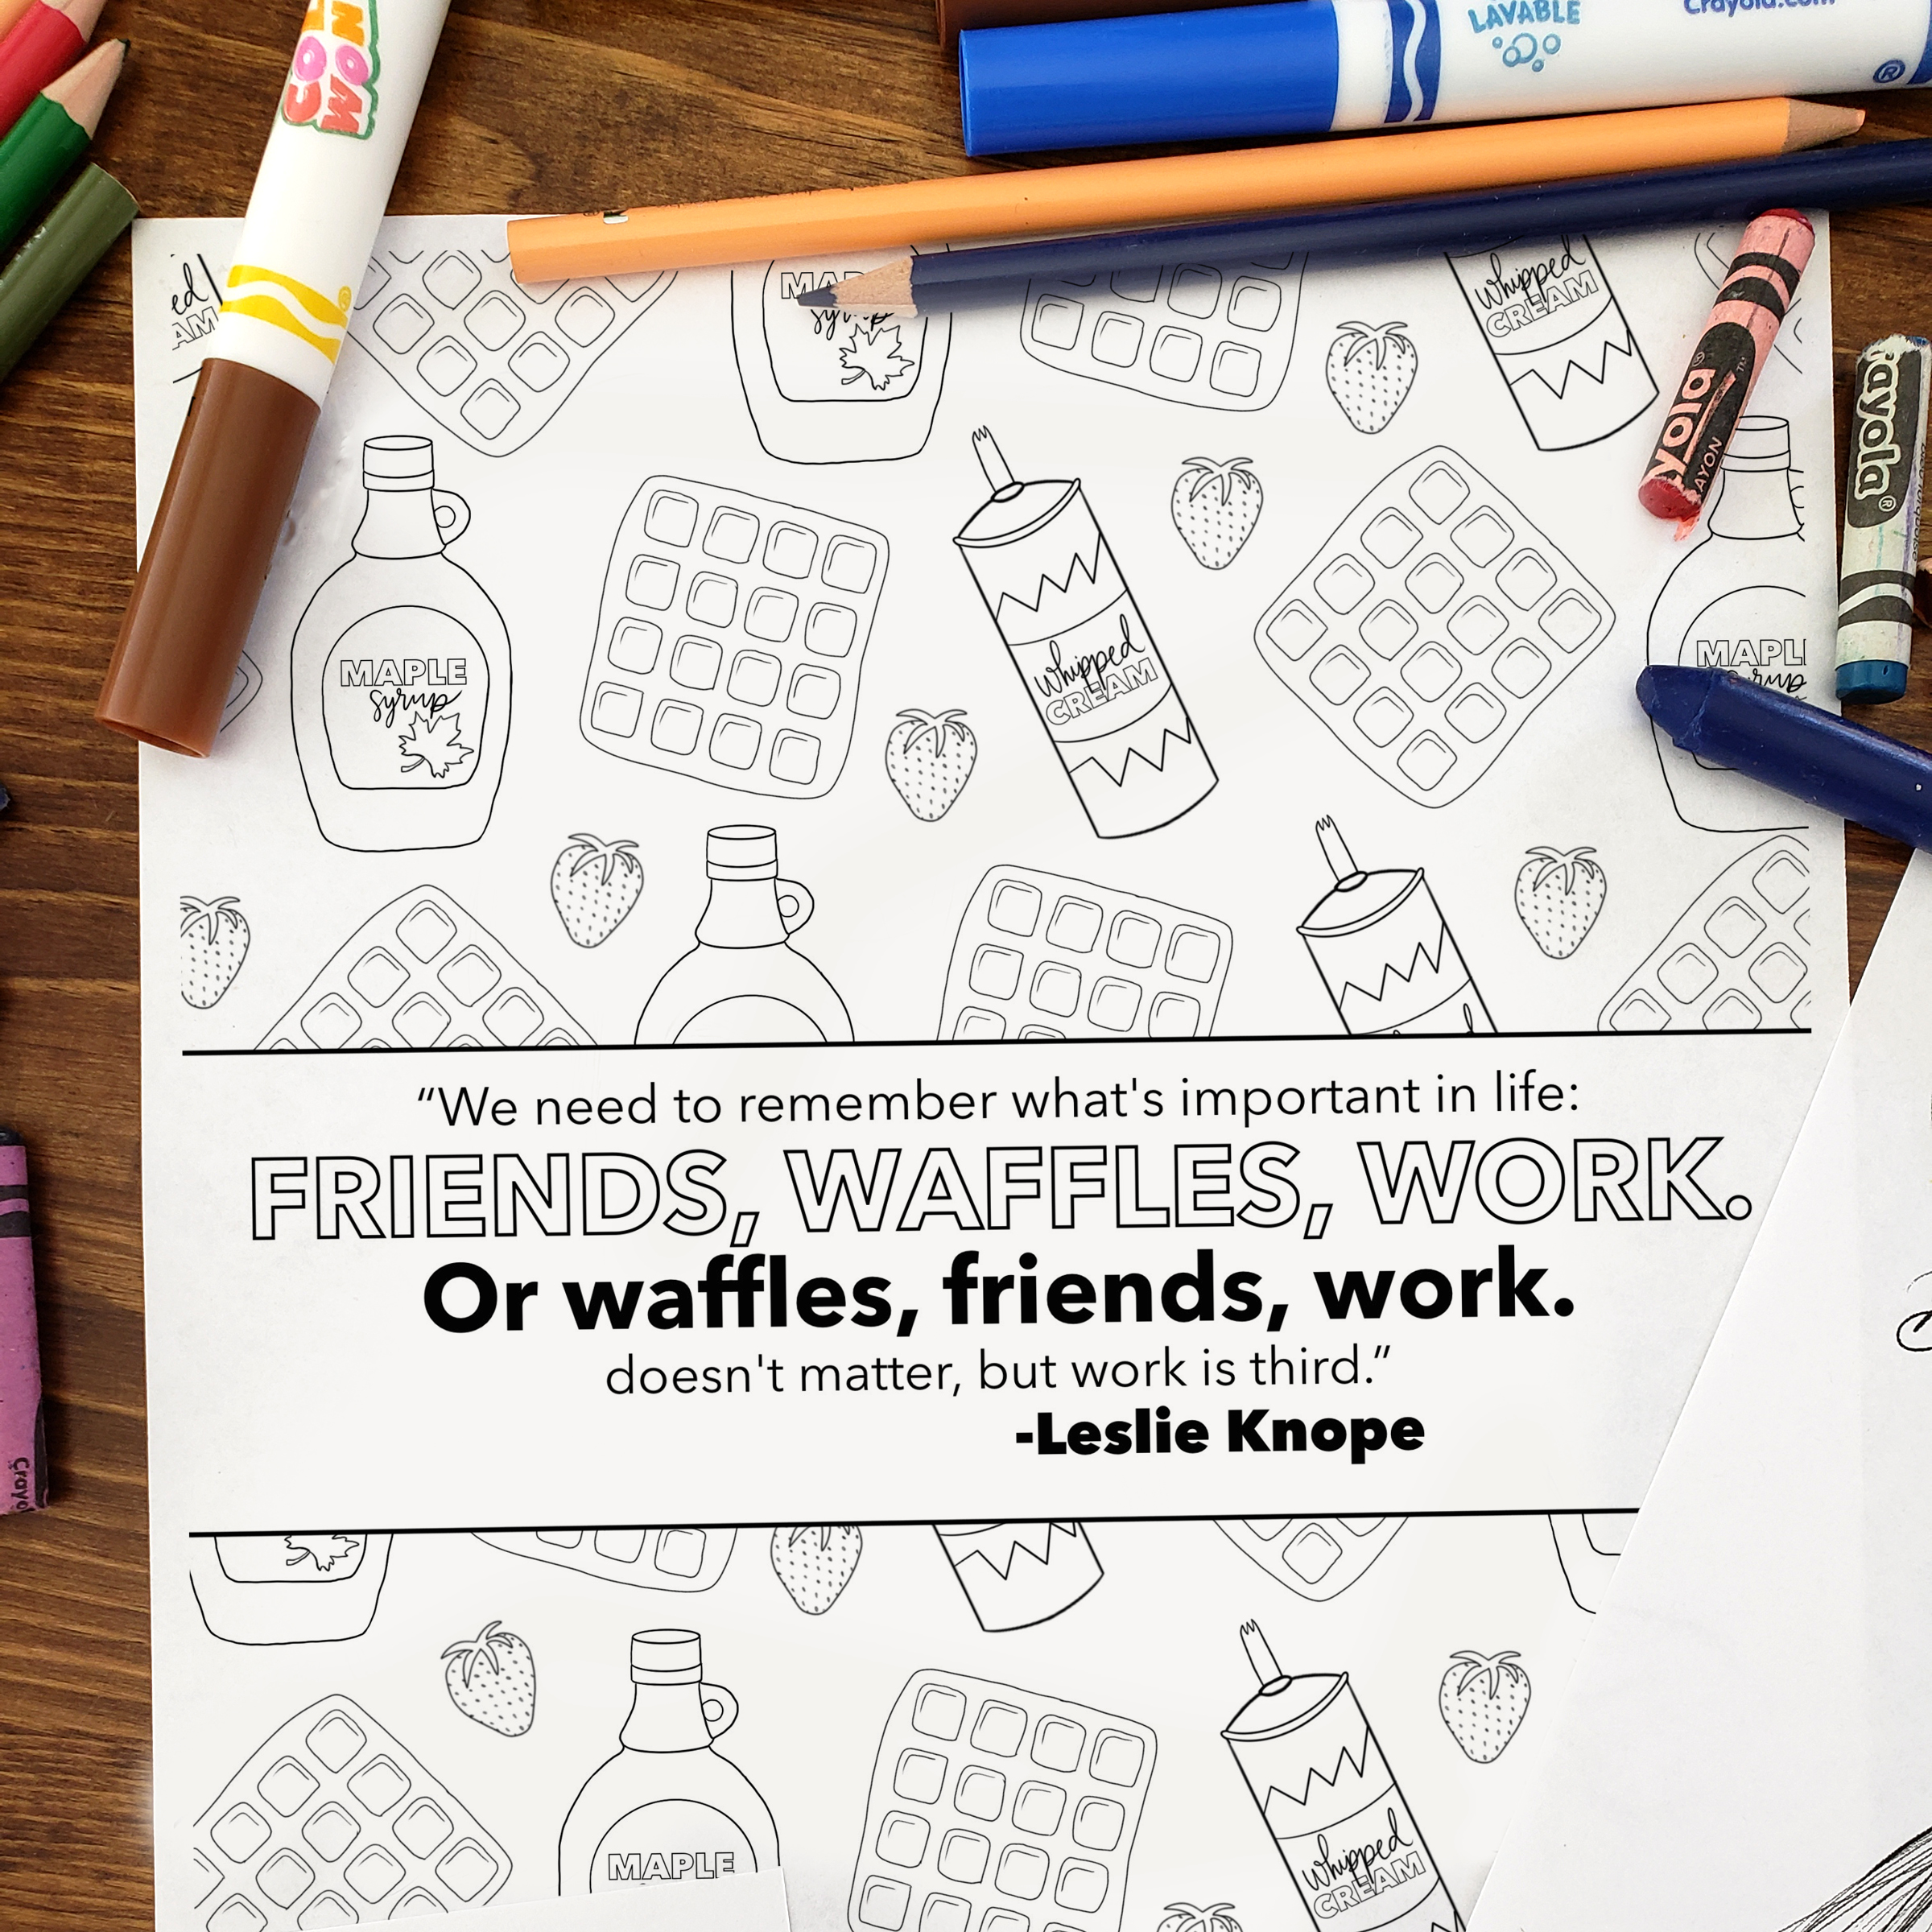 LAVABLE
Crayola.com
®
ed
AM
MAPLE
syrup
whipped
CREAM
yola
AYON
rayola®
MAPLE
syrup
whipped
CREAM
MAPL
“We need to remember what's important in life:
FRIENDS, WAFFLES, WORK.
Or waffles, friends, work.
doesn't matter, but work is third.”
-Leslie Knope
Crayo
MAPLE
whipped
CREAM